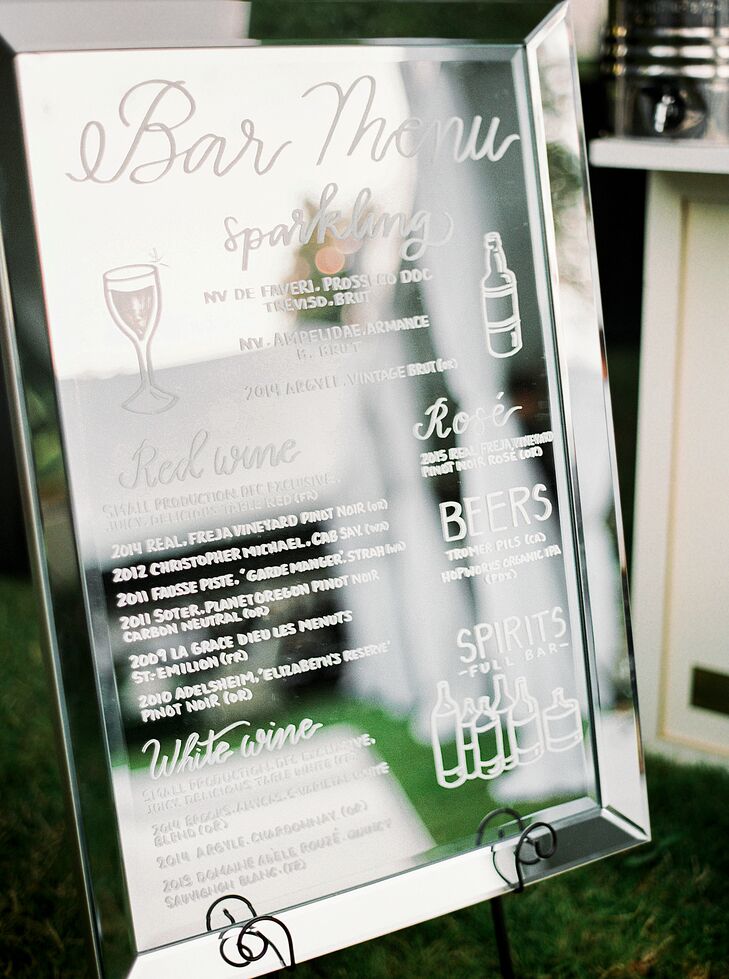 Bar Menu
Sparkling
NV DE FAVERI. PROSSECO DOC
TREVISO. BRUT
NV. AMPELIDAE. ARMANCE
B. BRUT
2014 ARGYLE. VINTAGE BRUT (OR)
Rosé
2015 REAL. FREJA VINEYARD
PINOT NOIR ROSÉ (OR)
Red wine
SMALL PRODUCTION. DFC EXCLUSIVE.
JUICY. DELICIOUS TABLE RED (FR)
2014 REAL. FREJA VINEYARD PINOT NOIR (OR)
2012 CHRISTOPHER MICHAEL. CAB SAV. (WA)
2011 FAUSSE PISTE. "GARDE MANGER". SYRAH (WA)
2011 SOTER. PLANET OREGON PINOT NOIR
CARBON NEUTRAL (OR)
2009 LA GRACE DIEU LES MENUTS
ST-EMILION (FR)
2010 ADELSHEIM. "ELIZABETH'S RESERVE"
PINOT NOIR (OR)
BEERS
TRUMER PILS (CA)
HOPWORKS ORGANIC IPA
(PDX)
SPIRITS
-FULL BAR-
White wine
SMALL PRODUCTION. DFC EXCLUSIVE.
JUICY. DELICIOUS TABLE WHITE (FR)
2014 BROOKS. AMYCAS. 5 VARIETAL WHITE
BLEND (OR)
2014 ARGYLE. CHARDONNAY. (OR)
2013 DOMAINE ADÈLE ROUZÉ. QUINCY
SAUVIGNON BLANC. (FR)